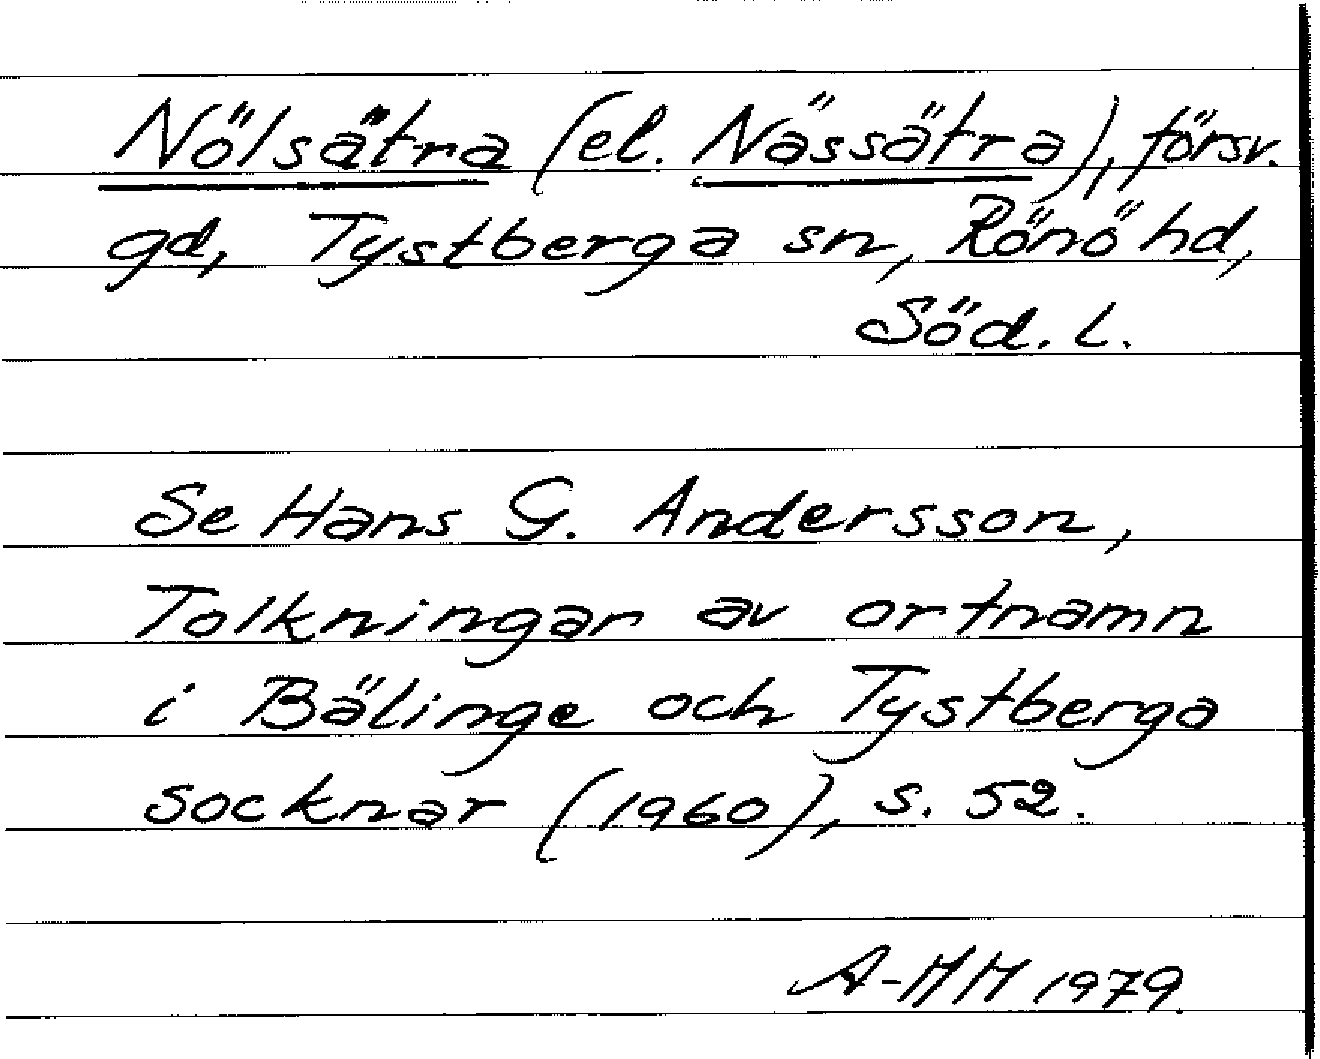 Nölsätra (el. Nässätra), försv.
gd, Tystberga sn, Rönö hd,
Söd. l.
Se Hans G. Andersson,
Tolkningar av ortnamn
i Bälinge och Tystberga
socknar (1960), s. 52.
A-MM 1979.